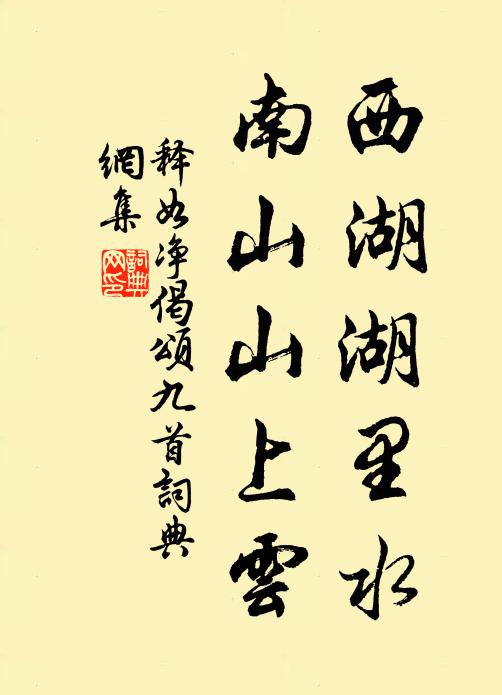 西湖湖里水
南山山上雲
释如净偈頌九首詞典
網集
詞典
网印